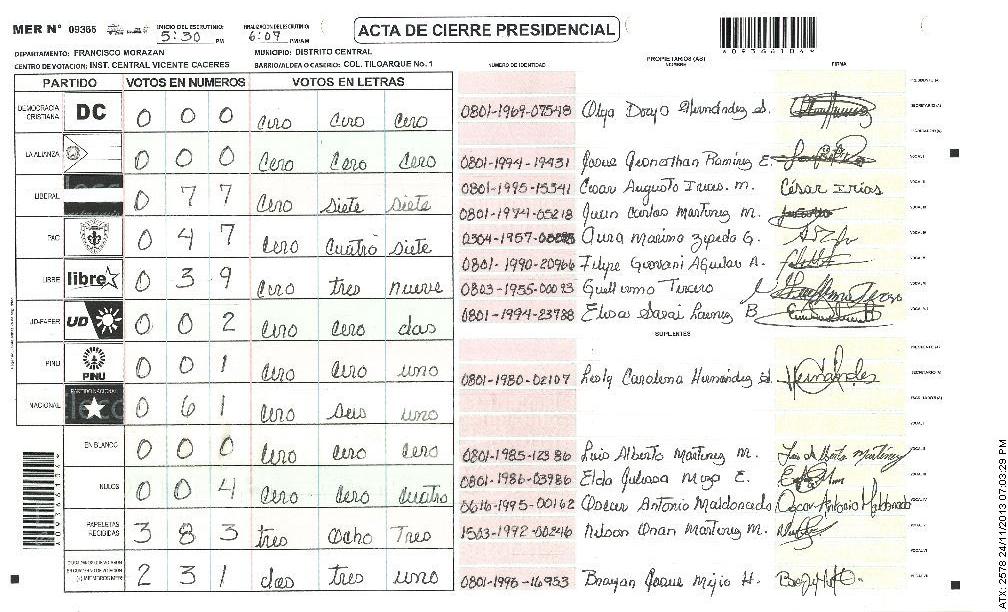 MER N° 09366 INICIO DEL ESCRUTINIO: 5:30 PM FINALIZACION DEL ESCRUTINIO: 6:07 PM/AM
ACTA DE CIERRE PRESIDENCIAL
DEPARTAMENTO: FRANCISCO MORAZAN MUNICIPIO: DISTRITO CENTRAL
CENTRO DE VOTACION: INST. CENTRAL VICENTE CACERES BARRIO/ALDEA O CASERIO: COL. TILOARQUE No. 1
PARTIDO VOTOS EN NUMEROS VOTOS EN LETRAS
DEMOCRACIA CRISTIANA DC 0 0 0 Cero Cero Cero
LA ALIANZA 0 0 0 Cero Cero Cero
LIBERAL 0 7 7 Cero siete siete
PAC 0 4 7 Cero Cuatro siete
LIBRE libre 0 3 9 Cero tres nueve
UD-FAPER UD 0 0 2 Cero Cero dos
PINU PINU 0 0 1 Cero Cero uno
NACIONAL PARTIDO NACIONAL 0 6 1 Cero seis uno
EN BLANCO 0 0 0 Cero Cero Cero
NULOS 0 0 4 Cero Cero Cuatro
PAPELETAS RECIBIDAS 3 8 3 tres Ocho Tres
2 3 1 dos tres uno
NUMERO DE IDENTIDAD PROPIETARIOS (AS) NOMBRE FIRMA
0801-1969-07548 Olga Hernández
0801-1994-19431 Josue Ramirez E.
0801-1995-15341 Cesar Augusto Irias. M. César Irias
0801-1974-05218 Juan Carlos Martinez M.
1957 Aura Marina Zepeda G.
0801-1990-20966 Filipe Giovani Aguilar A.
0803-1955-00093 Guillermo Tercero
0801-1994-23788 Elisa Sarai B
SUPLENTES
0801-1980-02107 Lesly Carolina Hernández Hernández
0801-1985-12386 Luis Alberto Martinez M. Luis Alberto Martinez
0801-1986-03986 Elda E.
0616-1995-00162 Oscar Antonio Maldonado Oscar Antonio Maldonado
1503-1992-00246 Nelson Onan Martinez M.
0801-1996-16953 Brayan Josue Mejia H.
ATX 2578 24/11/2013 07:03:29 PM